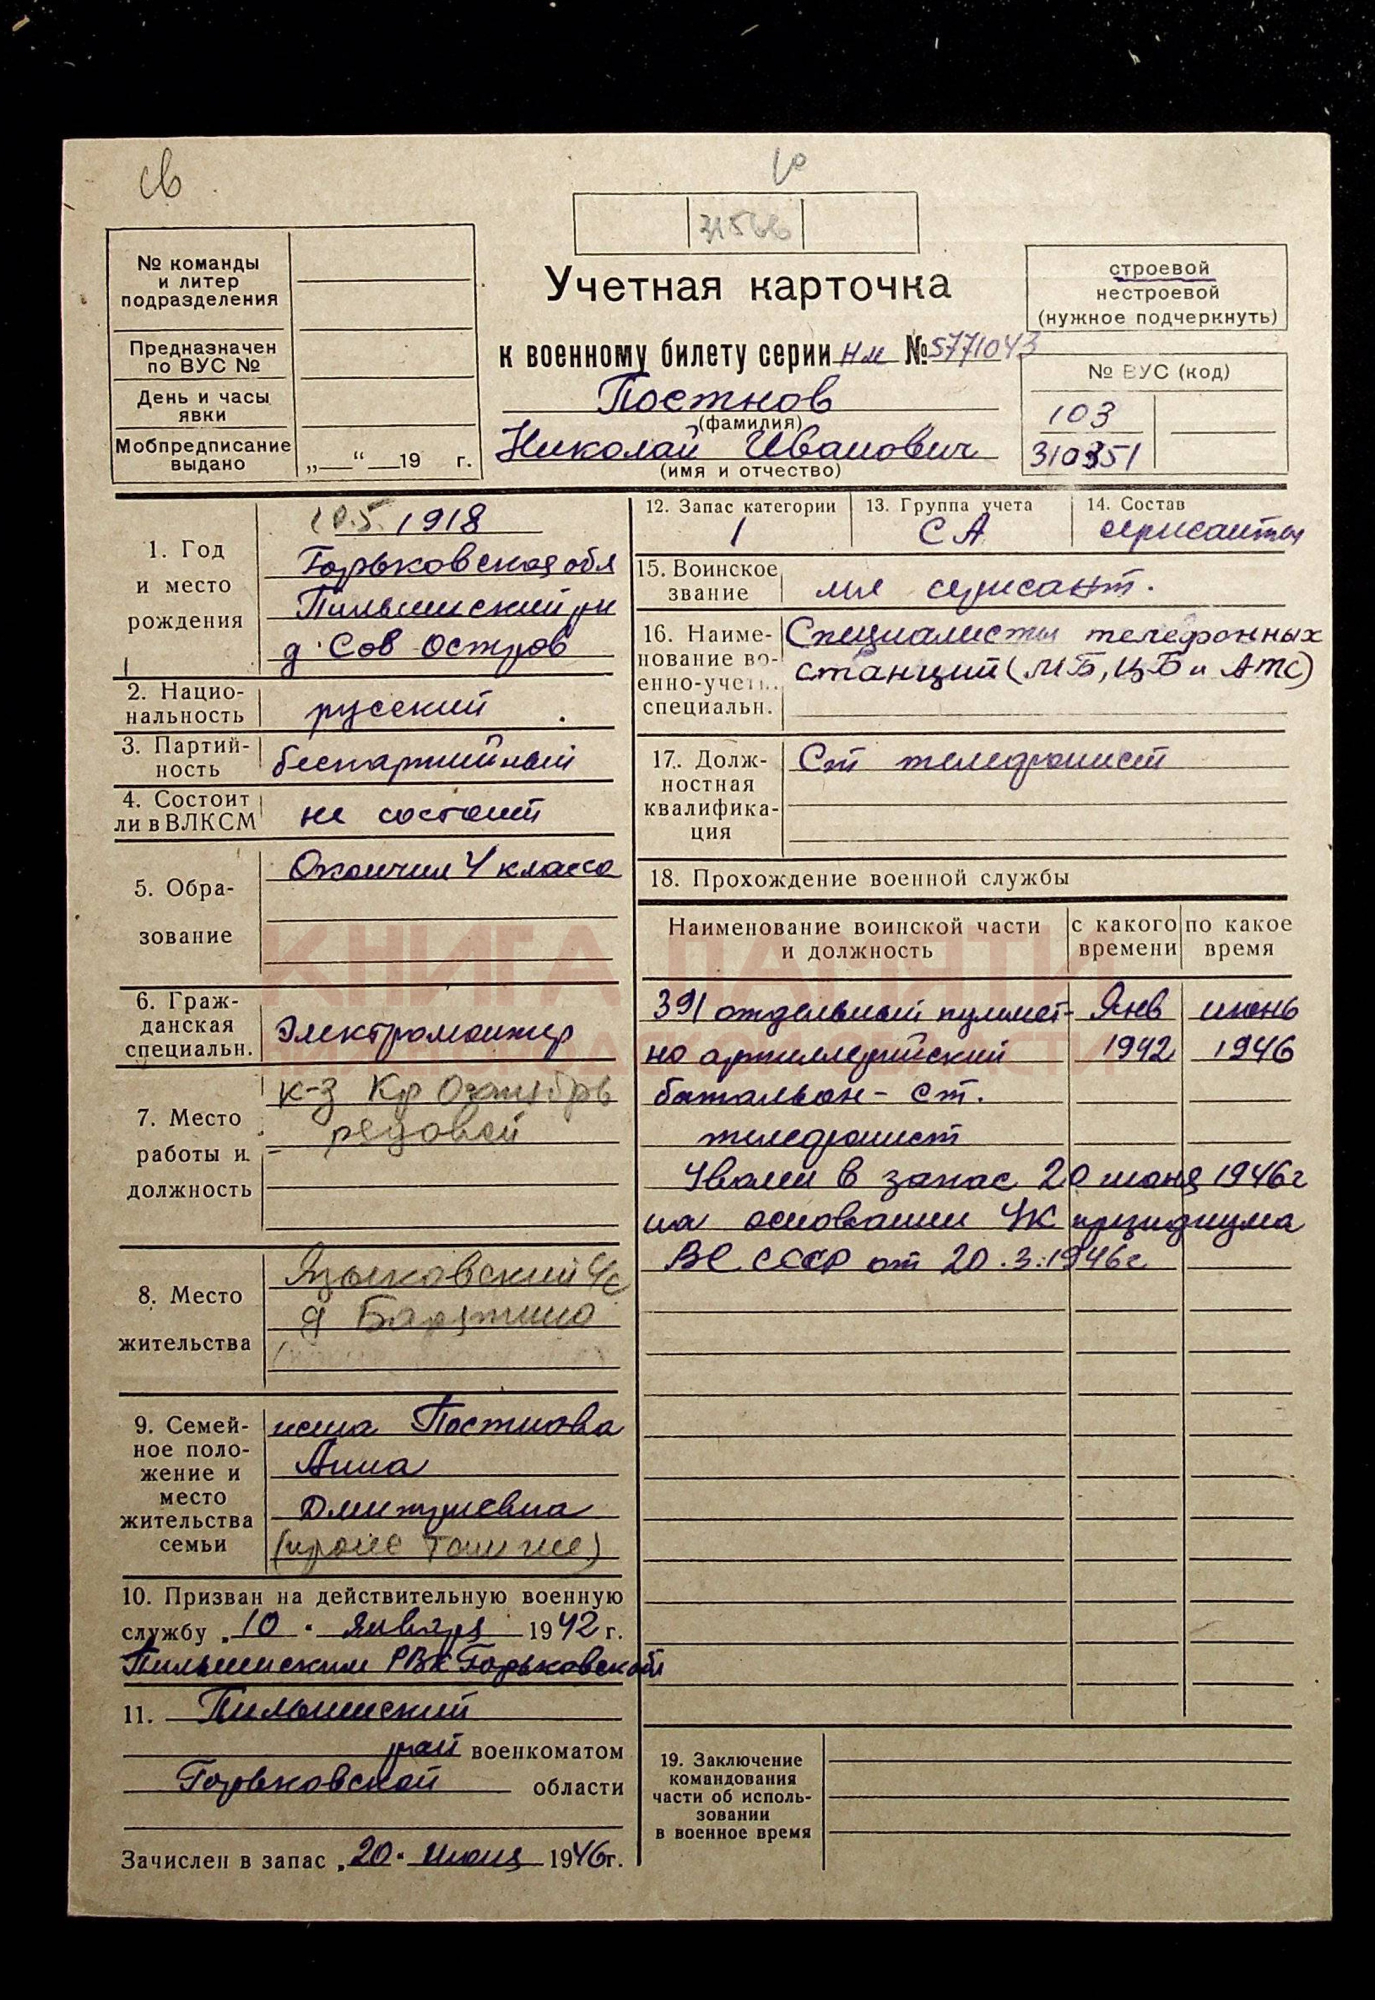 св
31566
№ команды
и литер
подразделения
Предназначен
по ВУС №
День и часы
явки
Мобпредписание
выдано
„ “ 19 г.
Учетная карточка
к военному билету серии нм № 5771043
Постнов
(фамилия)
Николай Иванович
(имя и отчество)
строевой
нестроевой
(нужное подчеркнуть)
№ ВУС (код)
103
310351
1. Год
и место
рождения
10.5. 1918
Горьковская обл
Пильнинский рн
д. Сов Остров
2. Нацио-
нальность
русский
3. Партий-
ность
беспартийный
4. Состоит
ли в ВЛКСМ
не состоит
5. Обра-
зование
Окончил 4 класса
6. Граж-
данская
специальн.
Электромонтер
7. Место
работы и
должность
к-з Кр Октябрь
рядовой
8. Место
жительства
Языковский с/с
д
9. Семей-
ное поло-
жение и
место
жительства
семьи
жена Постнова
Анна
Дмитриевна
(прож там же)
10. Призван на действительную военную
службу „10“ января 1942 г.
Пильнинским РВК Горьковской обл
11. Пильнинский
рай военкоматом
Горьковской области
Зачислен в запас „20“ июня 1946 г.
12. Запас категории
1
13. Группа учета
СА
14. Состав
сержанты
15. Воинское
звание
мл сержант.
16. Наиме-
нование во-
енно-учетн.
специальн.
Специалисты телефонных
станций (МБ, ЦБ и АТС)
17. Долж-
ностная
квалифика-
ция
Ст телефонист
18. Прохождение военной службы
Наименование воинской части
и должность
с какого
времени
по какое
время
391 отдельный пулемет- Янв июнь
но артиллерийский 1942 1946
батальон - ст.
телефонист
Уволен в запас 20 июня 1946г
на основании УК президиума
ВС СССР от 20.3.1946г
19. Заключение
командования
части об исполь-
зовании
в военное время
КНИГА ПАМЯТИ
НИЖЕГОРОДСКОЙ ОБЛАСТИ